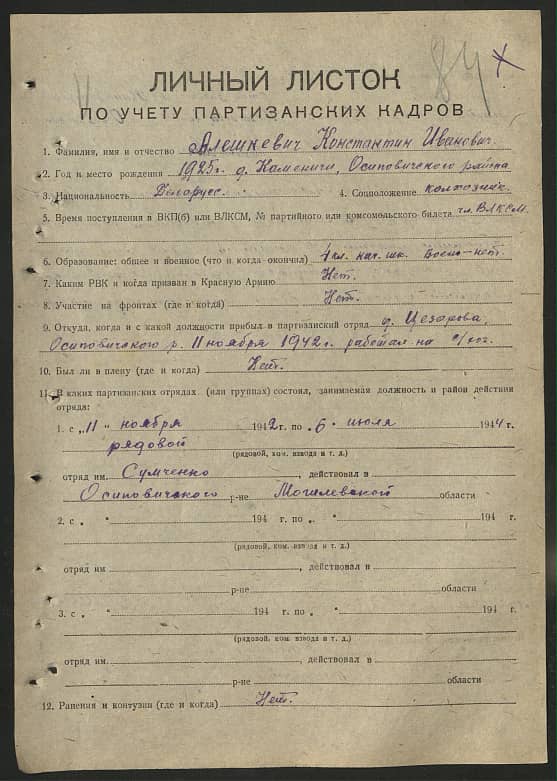 84
ЛИЧНЫЙ ЛИСТОК
ПО УЧЕТУ ПАРТИЗАНСКИХ КАДРОВ
1. Фамилия, имя и отчество Алешкевич Константин Иванович
2. Год и место рождения 1925г. д. Каменичи, Осиповичского района
3. Национальность Белорусс. 4. Соцположение колхозник.
5. Время поступления в ВКП(б) или ВЛКСМ, № партийного или комсомольского билета чл. ВЛКСМ
6. Образование: общее и военное (что и когда окончил) 4 кл. нач. шк. Воен-нет.
7. Каким РВК и когда призван в Красную Армию Нет.
8. Участие на фронтах (где и когда) Нет.
9. Откуда, когда и с какой должности прибыл в партизанский отряд д. Цезарова,
Осиповичского р. 11 ноября 1942г. работал на с/хоз.
10. Был ли в плену (где и когда) Нет.
11. В каких партизанских отрядах (или группах) состоял, занимаемая должность и район действия
отряда:
1. с „11" ноября 1942 г. по „6. июля 1944 г.
рядовой
(рядовой, ком. взвода и т. д.)
отряд им Сумченко, действовал в
Осиповичского р-не Могилевской области
2. с „ " 194 г. по „ " 194 г.
(рядовой, ком. взвода и т. д.)
отряд им , действовал в
р-не области
3. с „ " 194 г. по „ " 194 г.
(рядовой, ком. взвода и т. д.)
отряд им. , действовал в
р-не области
12. Ранения и контузии (где и когда) Нет.